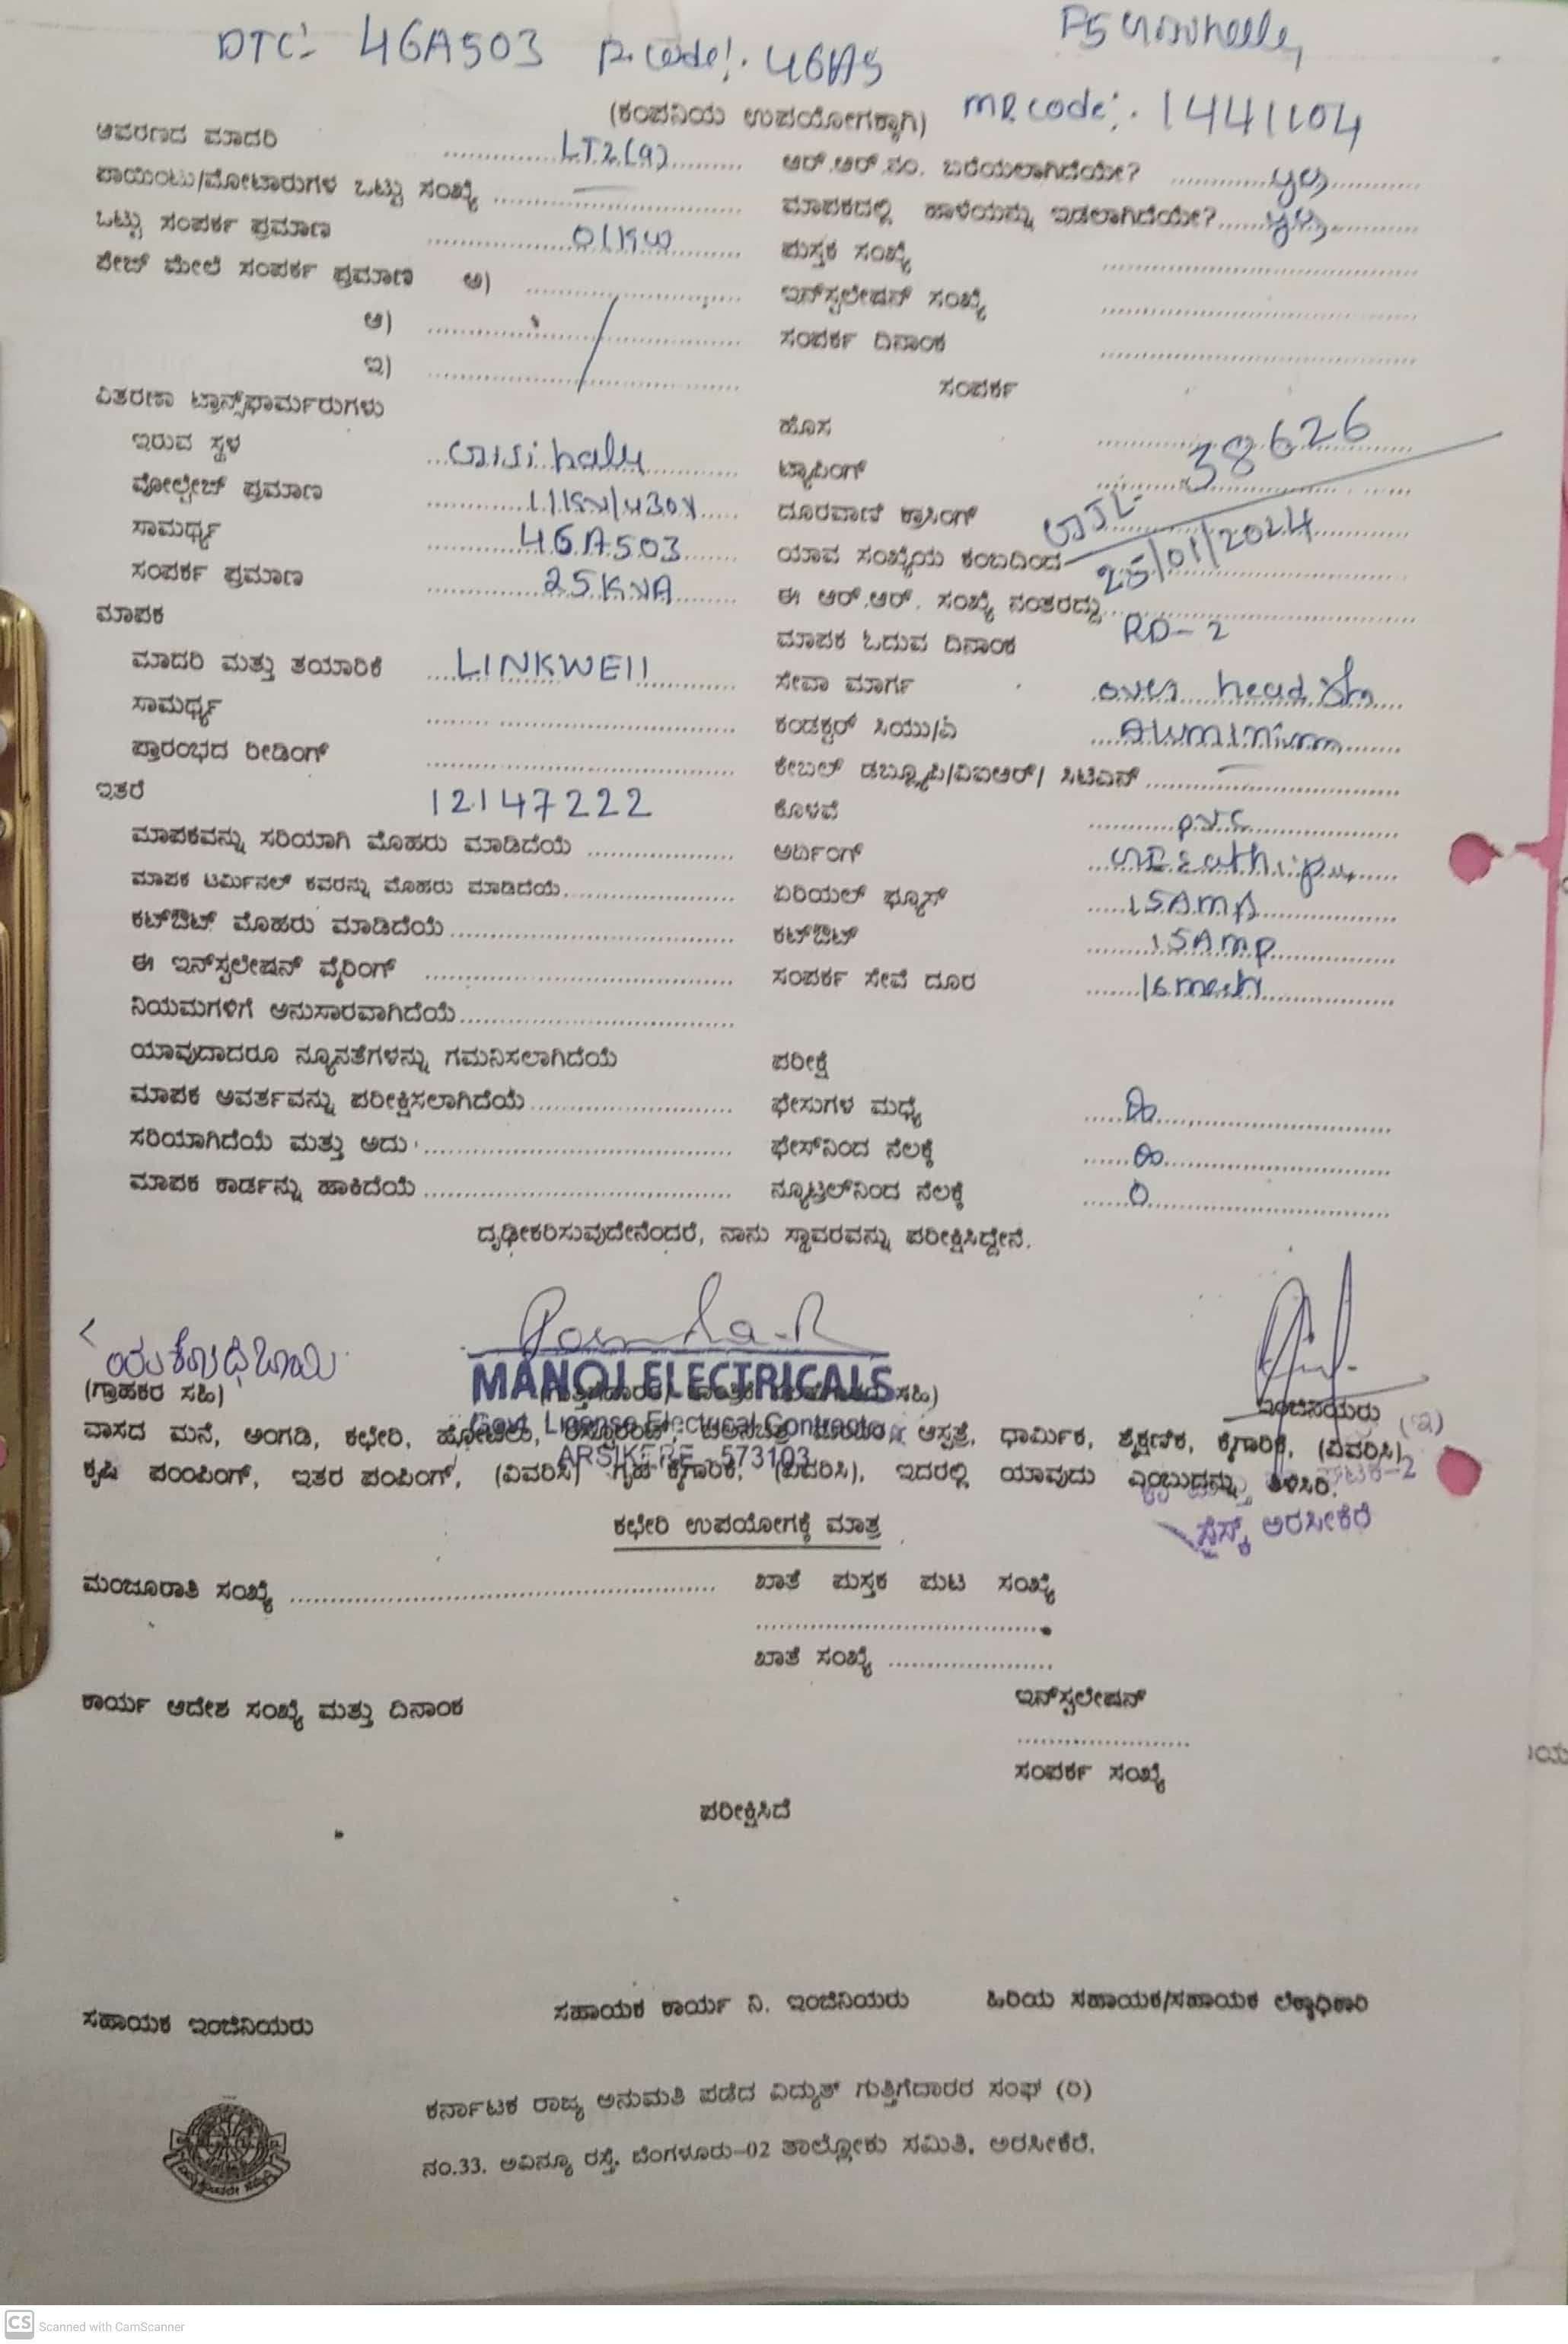 DTC:- 46A503 P. code:- 46A5
MR code:- 1441104
(ಕಂಪನಿಯ ಉಪಯೋಗಕ್ಕಾಗಿ)
ಆವರಣದ ಮಾದರಿ LT2(a) ಆರ್.ಆರ್.ನಂ. ಬರೆಯಲಾಗಿದೆಯೇ? yes
ಪಾಯಿಂಟು/ಮೋಟಾರುಗಳ ಒಟ್ಟು ಸಂಖ್ಯೆ ಮಾಪಕದಲ್ಲಿ ಹಾಳೆಯನ್ನು ಇಡಲಾಗಿದೆಯೇ? yes
ಒಟ್ಟು ಸಂಪರ್ಕ ಪ್ರಮಾಣ 01KW ಪುಸ್ತಕ ಸಂಖ್ಯೆ
ಪೇಜ್ ಮೇಲೆ ಸಂಪರ್ಕ ಪ್ರಮಾಣ ಅ) ಇನ್‌ಸ್ಟಲೇಷನ್ ಸಂಖ್ಯೆ
ಆ) ಸಂಪರ್ಕ ದಿನಾಂಕ
ಇ) ಸಂಪರ್ಕ
ವಿತರಣಾ ಟ್ರಾನ್ಸ್‌ಫಾರ್ಮರುಗಳು ಹೊಸ
ಇರುವ ಸ್ಥಳ ಟ್ಯಾಪಿಂಗ್ 38626
ವೋಲ್ಟೇಜ್ ಪ್ರಮಾಣ 11KV/430V ದೂರವಾಣಿ ಕ್ರಾಸಿಂಗ್
ಸಾಮರ್ಥ್ಯ 46A503 ಯಾವ ಸಂಖ್ಯೆಯ ಕಂಬದಿಂದ 25/01/2024
ಸಂಪರ್ಕ ಪ್ರಮಾಣ 25KVA ಈ ಆರ್.ಆರ್. ಸಂಖ್ಯೆ ನಂತರದ್ದು
ಮಾಪಕ ಮಾಪಕ ಓದುವ ದಿನಾಂಕ RD-2
ಮಾದರಿ ಮತ್ತು ತಯಾರಿಕೆ LINKWEll ಸೇವಾ ಮಾರ್ಗ over head
ಸಾಮರ್ಥ್ಯ ಕಂಡಕ್ಟರ್ ಸಿಯು/ಏ Aluminium
ಪ್ರಾರಂಭದ ರೀಡಿಂಗ್ ಕೇಬಲ್ ಡಬ್ಲ್ಯೂಪಿ/ವಿಐಆರ್/ ಸಿಟಿಎಸ್
ಇತರೆ 12147222 ಕೊಳವೆ PVC
ಮಾಪಕವನ್ನು ಸರಿಯಾಗಿ ಮೊಹರು ಮಾಡಿದೆಯೆ ಅರ್ಥಿಂಗ್
ಮಾಪಕ ಟರ್ಮಿನಲ್ ಕವರನ್ನು ಮೊಹರು ಮಾಡಿದೆಯೆ ಏರಿಯಲ್ ಫ್ಯೂಸ್ 15AMP
ಕಟ್‌ಔಟ್ ಮೊಹರು ಮಾಡಿದೆಯೆ ಕಟ್‌ಔಟ್ 15AMP
ಈ ಇನ್‌ಸ್ಟಲೇಷನ್ ವೈರಿಂಗ್ ಸಂಪರ್ಕ ಸೇವೆ ದೂರ
ನಿಯಮಗಳಿಗೆ ಅನುಸಾರವಾಗಿದೆಯೆ
ಯಾವುದಾದರೂ ನ್ಯೂನತೆಗಳನ್ನು ಗಮನಿಸಲಾಗಿದೆಯೆ ಪರೀಕ್ಷೆ
ಮಾಪಕ ಆವರ್ತವನ್ನು ಪರೀಕ್ಷಿಸಲಾಗಿದೆಯೆ ಫೇಸುಗಳ ಮಧ್ಯೆ
ಸರಿಯಾಗಿದೆಯೆ ಮತ್ತು ಅದು ಫೇಸ್‌ನಿಂದ ನೆಲಕ್ಕೆ
ಮಾಪಕ ಕಾರ್ಡನ್ನು ಹಾಕಿದೆಯೆ ನ್ಯೂಟ್ರಲ್‌ನಿಂದ ನೆಲಕ್ಕೆ 0
ದೃಢೀಕರಿಸುವುದೇನೆಂದರೆ, ನಾನು ಸ್ಥಾವರವನ್ನು ಪರೀಕ್ಷಿಸಿದ್ದೇನೆ.
MANOJ ELECTRICALS
(ಗ್ರಾಹಕರ ಸಹಿ) ಸಹಿ) ಇಂಜಿನಿಯರು
Govt. License Electrical Contractor
ವಾಸದ ಮನೆ, ಅಂಗಡಿ, ಕಛೇರಿ, ಹೋಟೆಲು, ಆಸ್ಪತ್ರೆ, ಧಾರ್ಮಿಕ, ಶೈಕ್ಷಣಿಕ, ಕೈಗಾರಿಕೆ, (ವಿವರಿಸಿ)
ARSIKERE - 573103
ಕೃಷಿ ಪಂಂಪಿಂಗ್, ಇತರ ಪಂಪಿಂಗ್, (ವಿವರಿಸಿ) ಗೃಹ ಕೈಗಾರಿಕೆ, (ವಿವರಿಸಿ), ಇದರಲ್ಲಿ ಯಾವುದು ಎಂಬುದನ್ನು ತಿಳಿಸಿರಿ.
ಅರಸೀಕೆರೆ
ಕಛೇರಿ ಉಪಯೋಗಕ್ಕೆ ಮಾತ್ರ
ಮಂಜೂರಾತಿ ಸಂಖ್ಯೆ ಖಾತೆ ಪುಸ್ತಕ ಪುಟ ಸಂಖ್ಯೆ
ಖಾತೆ ಸಂಖ್ಯೆ
ಕಾರ್ಯ ಆದೇಶ ಸಂಖ್ಯೆ ಮತ್ತು ದಿನಾಂಕ ಇನ್‌ಸ್ಟಲೇಷನ್
ಸಂಪರ್ಕ ಸಂಖ್ಯೆ
ಪರೀಕ್ಷಿಸಿದೆ
ಸಹಾಯಕ ಇಂಜಿನಿಯರು ಸಹಾಯಕ ಕಾರ್ಯ ನಿ. ಇಂಜಿನಿಯರು ಹಿರಿಯ ಸಹಾಯಕ/ಸಹಾಯಕ ಲೆಕ್ಕಾಧಿಕಾರಿ
ಕರ್ನಾಟಕ ರಾಜ್ಯ ಅನುಮತಿ ಪಡೆದ ವಿದ್ಯುತ್ ಗುತ್ತಿಗೆದಾರರ ಸಂಘ (ರಿ)
ನಂ.33. ಅವಿನ್ಯೂ ರಸ್ತೆ, ಬೆಂಗಳೂರು-02 ತಾಲ್ಲೋಕು ಸಮಿತಿ, ಅರಸೀಕೆರೆ.
CS Scanned with CamScanner